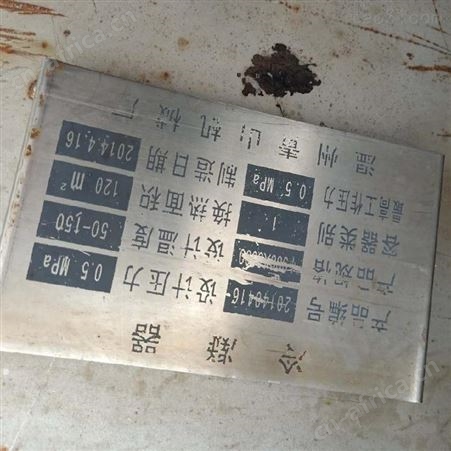 冷凝器
产品编号 20140416 设计压力 0.5 MPa
产品规格 设计温度 50-150
容器类别 1 换热面积 120 m²
最高工作压力 0.5 MPa 制造日期 2014.4.16
温州青山机械厂